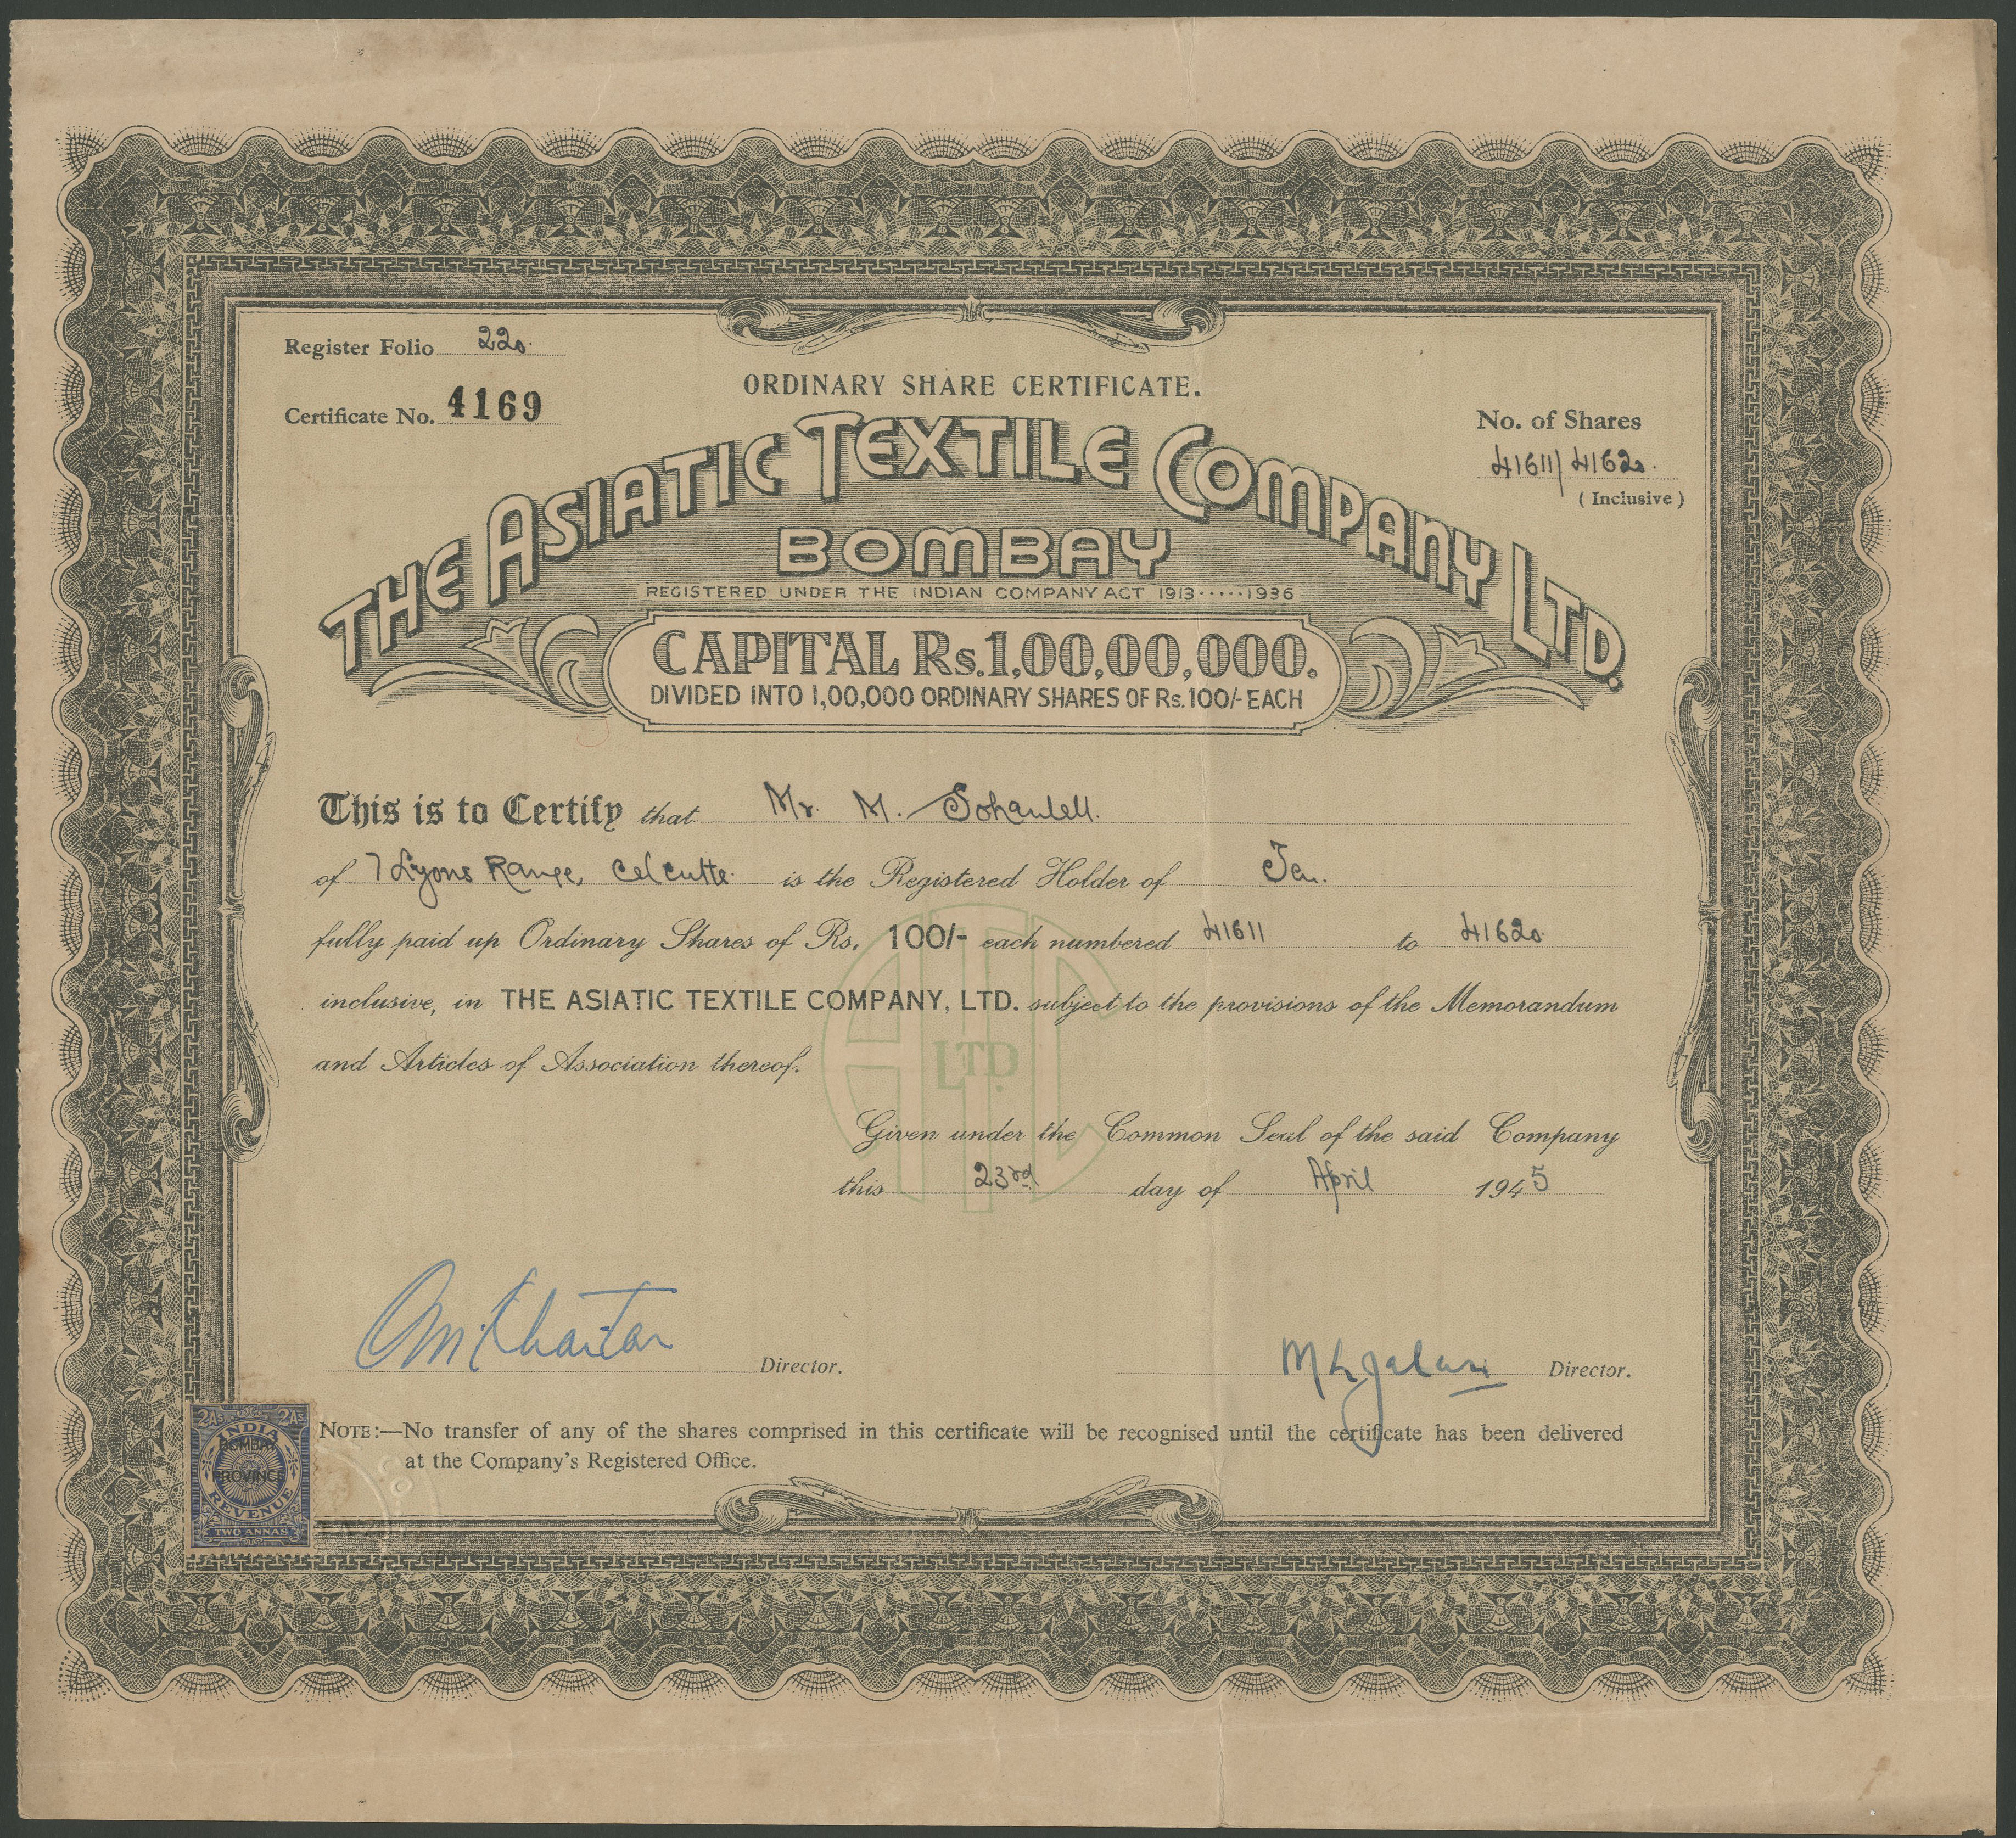 Register Folio 220.
Certificate No. 4169
ORDINARY SHARE CERTIFICATE.
No. of Shares
41611/41620.
(Inclusive)
THE ASIATIC TEXTILE COMPANY LTD.
BOMBAY
REGISTERED UNDER THE INDIAN COMPANY ACT 1913·····1936
CAPITAL Rs.1,00,00,000.
DIVIDED INTO 1,00,000 ORDINARY SHARES OF Rs.100/- EACH
This is to Certify that Mr. M.
of 7 Lyons Range, Calcutta. is the Registered Holder of Ten.
fully paid up Ordinary Shares of Rs. 100/- each numbered 41611 to 41620.
inclusive, in THE ASIATIC TEXTILE COMPANY, LTD. subject to the provisions of the Memorandum
and Articles of Association thereof.
ATC
LTD.
Given under the Common Seal of the said Company
this 23rd day of April 1945
Director.
M L Jalan Director.
NOTE:—No transfer of any of the shares comprised in this certificate will be recognised until the certificate has been delivered
at the Company's Registered Office.
2As. 2As
INDIA
BOMBAY
PROVINCE
REVENUE
TWO ANNAS